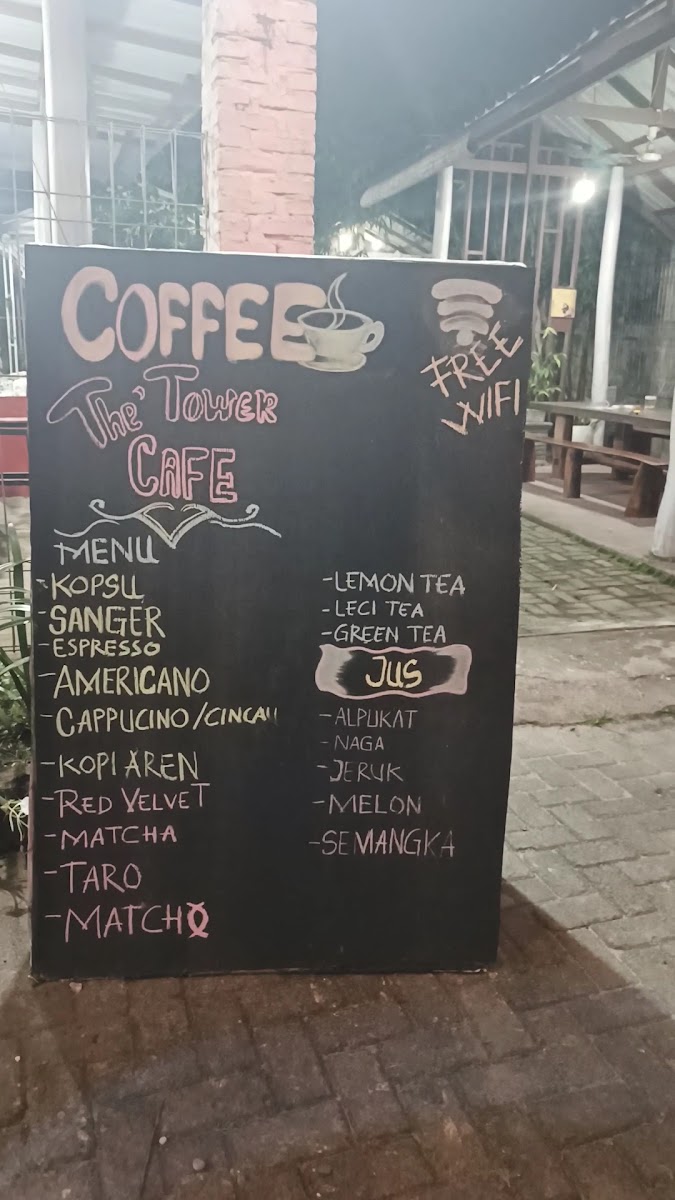 COFFEE
FREE
WIFI
The' TOWER
CAFE
MENU
-KOPSU
-SANGER
-ESPRESSO
-AMERICANO
-CAPPUCINO/CINCAU
-KOPI AREN
-RED VELVET
-MATCHA
-TARO
-MATCHA
-LEMON TEA
-LECI TEA
-GREEN TEA
JUS
-ALPUKAT
-NAGA
-JERUK
-MELON
-SEMANGKA